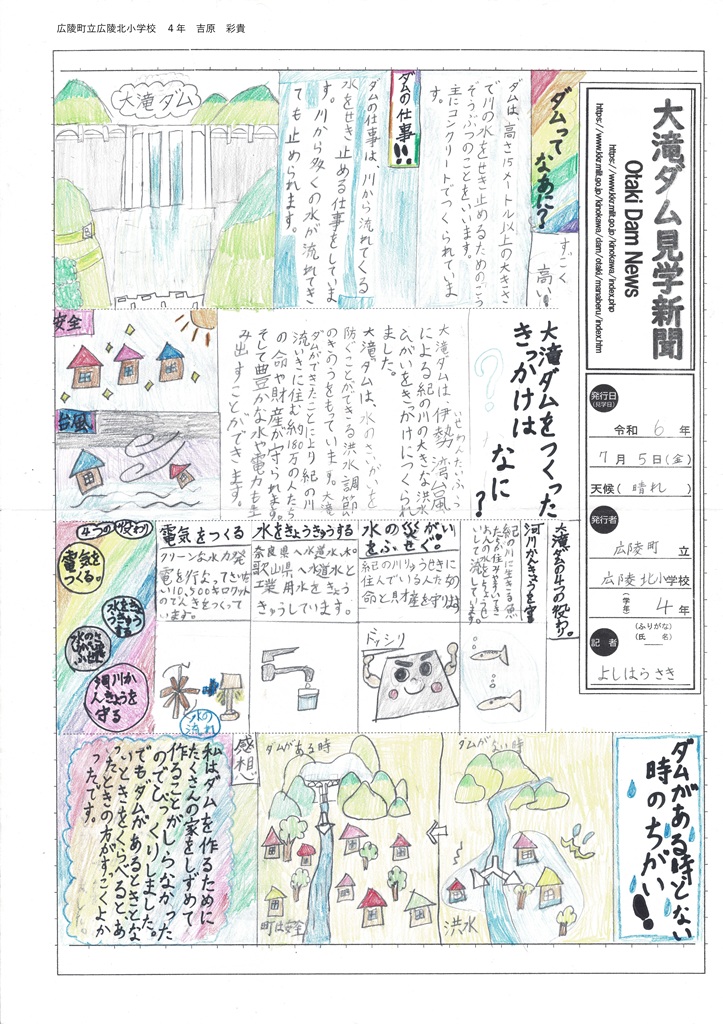 広陵町立広陵北小学校　４年　吉原　彩貴
大滝ダム見学新聞
Otaki Dam News
https://www.kkr.mlit.go.jp/kinokawa/index.php
https://www.kkr.mlit.go.jp/kinokawa/dam/otaki/manaberu/index.htm
発行日
(見学日)
令和 6 年
7月5日(金)
天候(晴れ)
発行者
広陵町 立
広陵北小学校
(学年) 4年
記者
(ふりがな)
(氏　名)
よしはらさき
ダムってなあに?
すごく高い
ダムは、高さ15メートル以上の大きさ
で川の水をせき止めるためのこう
ぞうぶつのことをいいます。
主にコンクリートでつくられていま
す。
ダムの仕事!!
ダムの仕事は、川から流れてくる
水をせき止める仕事をしていま
す。川から多くの水が流れてき
ても止められます。
大滝ダム
大滝ダムをつくった
きっかけは
なに?
?
大滝ダムは、伊勢湾台風
いせわんたいふう
による紀の川の大きな洪水
ひがいをきっかけにつくられ
ました。
大滝ダムは、水のさいがいを
防ぐことができる洪水調節
のきのうをもっています。大滝
ダムができたことにより紀の川
流いきに住む約
万の人たち
の命や財産が守られます。
そして豊かな水や電力も生
み出すことができます。
安全
台風
大滝ダムの4つの役わり。
河川かんきょうを守る
紀の川に生きる魚
水の災がい
をふせぐ。
紀の川りゅういきに
住んでいる人たちの
命と財産を守ります
ドッシリ
水をきょうきゅうする
奈良県へ水道水。
和歌山県へ水道水と
工業用水を
きょうきゅうしています。
電気をつくる
クリーンな水力発
電を行なっていて
10,500キロワット
のでんきをつくって
います。
水の
流れ
4つの役わり
電気を
つくる。
水をき
ょうきゅう
する
水のさ
いがいを
ふせぐ
河川か
んきょうを
守る
ダムがある時とない
時のちがい!
ダムがない時
洪水
ダムがある時
町は安全
感想
私はダムを作るために
たくさんの家をしずめて
作ることがしらなかった
のでびっくりしました。
でもダムがあるときとな
いときをくらべるとあ
ったときの方がすっごくよか
ったです。